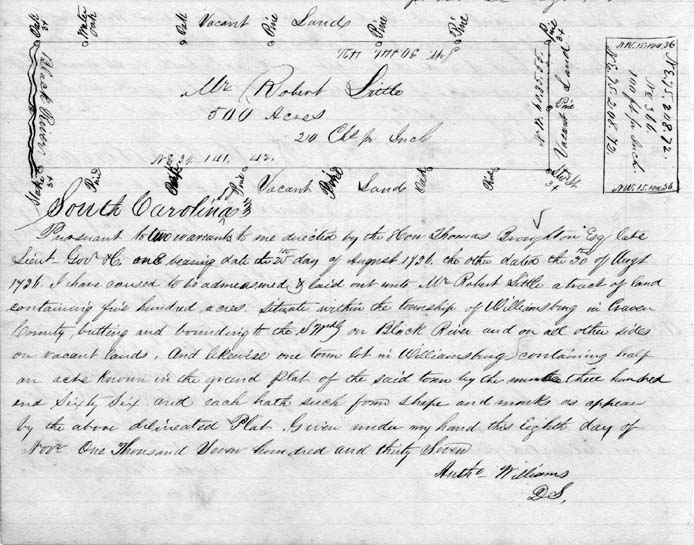 Oak Water oak Oak Vacant Pine Lands Pine Pine Pine
34 34
S W 30 141 42
Black River
Mr Robert Little
500 Acres
20 Chs pr Inch
N E 30 141. 42.
N W 60 35.55.
Pine
Vacant Land
Stake Pine Pine Vacant Pine Land Oak Pine Stake
34 34
N W. 15. 104.36
N E. 75. 208.72.
No 366
110 ft pr Inch.
N E. 75. 208.72.
N W. 15. 104.36
South Carolina
Pursuant to two warrants to me directed by the Hon Thomas Broughton Esq late
Lieut Govr &C. one bearing date the 25 day of August 1736. the other dated the 20th of Augst
1736. I have caused to be admeasured & laid out unto Mr Robert Little a tract of land
containing five hundred acres. situate within the township of Williamsburg in Craven
County, butting and bounding to the S Wdly on Black River and on all other sides
on vacant lands, And likewise one town lot in Williamsburg containing half
an acre known in the grand plat of the said town by the number three hundred
and Sixty Six and each hath such form shape and marks as appear
by the above delineated Plat. Given under my hand this Eighth day of
Novr One Thousand Seven hundred and thirty Seven
Anthо Williams
D S,